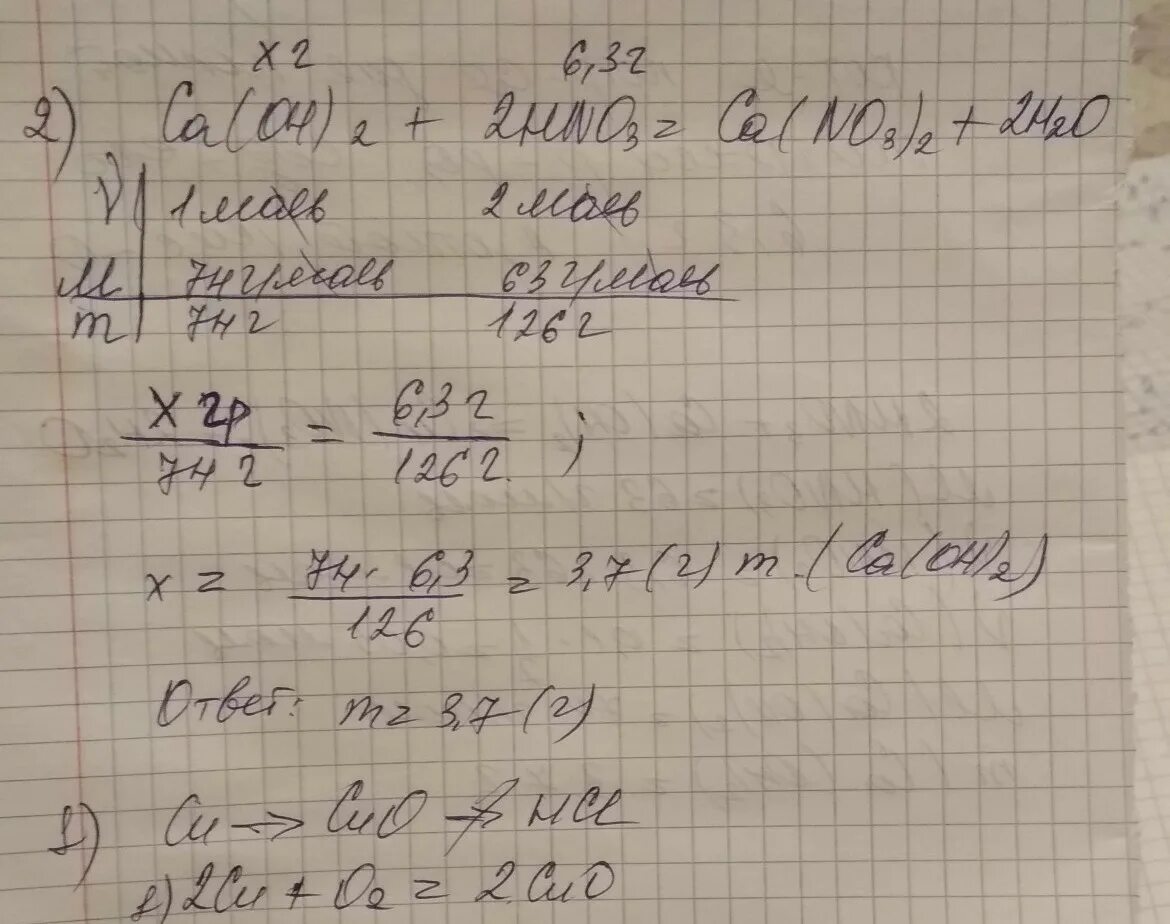 x г 6,3 г
2) Ca(OH)2 + 2HNO3 = Ca(NO3)2 + 2H2O
ν 1 моль 2 моль
M 74 г/моль 63 г/моль
m 74 г 126 г
x гр / 74 г = 6,3 г / 126 г. ;
x = 74 · 6,3 / 126 = 3,7 (г) m (Ca(OH)2)
Ответ: m = 3,7 (г)
1) Cu → CuO → HCl
1) 2Cu + O2 = 2CuO